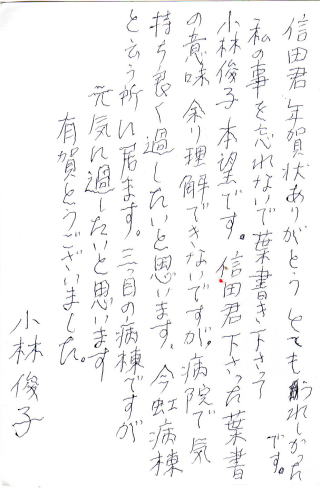 信田君年賀状ありがとう とてもうれしかった
です。
私の事を忘れないで葉書き下さって
小林俊子本望です。信田君下さった葉書
の意味 余り理解できないですが。病院で気
持ち良く過したいと思います。今虹病棟
と云う所に居ます。三つ目の病棟ですが
元気に過したいと思います
有賀とうございました。
小林俊子